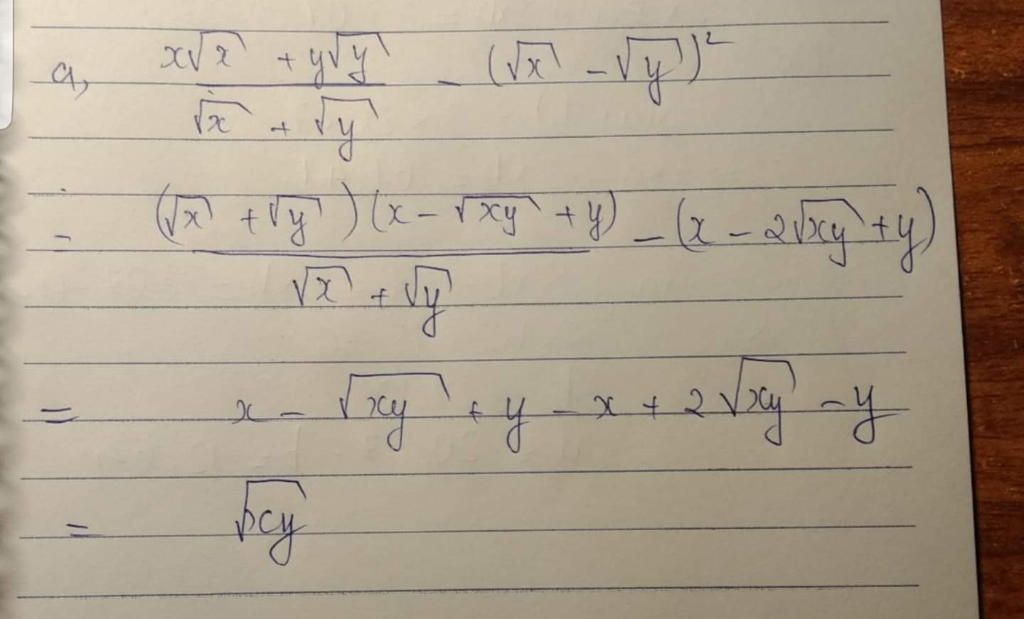 a, (x√x + y√y)/(√x + √y) - (√x - √y)²
= ((√x + √y)(x - √xy + y))/(√x + √y) - (x - 2√xy + y)
= x - √xy + y - x + 2√xy - y
= √xy